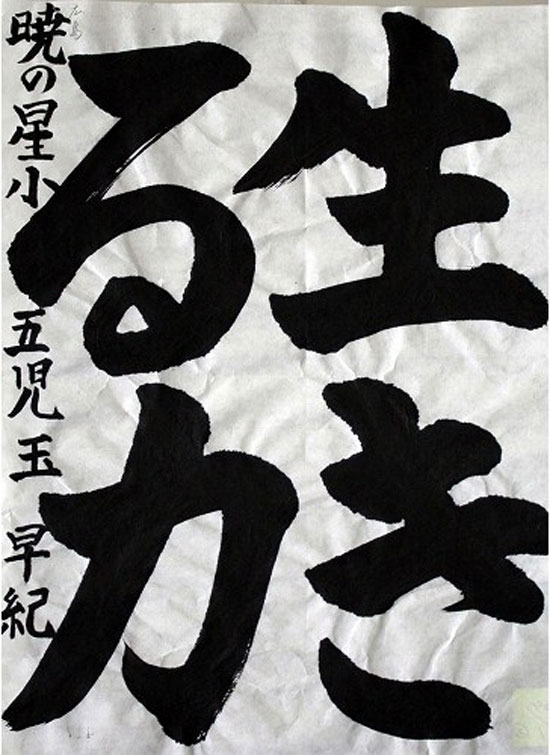 生き
る力
暁の星小 五 児玉 早紀
広島